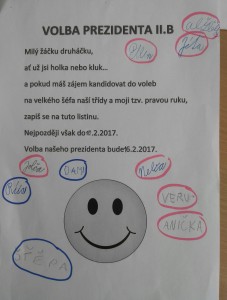 VOLBA PREZIDENTA II.B
Milý žáčku druháčku,
ať už jsi holka nebo kluk...
a pokud máš zájem kandidovat do voleb
na velkého šéfa naší třídy a moji tzv. pravou ruku,
zapiš se na tuto listinu.
Nejpozději však do 17.2.2017.
Volba našeho prezidenta bude 16.2.2017.
DAN
VERU
ANIČKA
ŠTĚPA